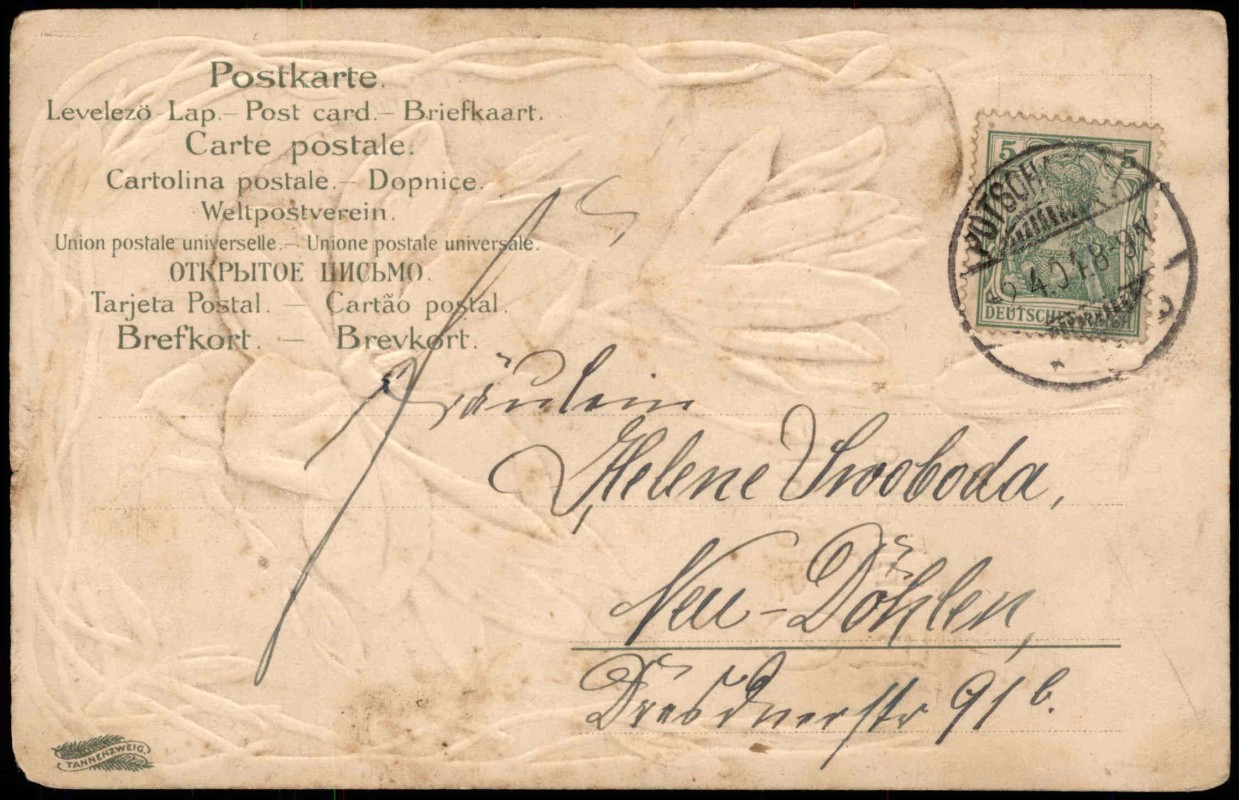 Postkarte.
Levelezö-Lap.— Post card.— Briefkaart.
Carte postale.
Cartolina postale.— Dopnice.
Weltpostverein.
Union postale universelle.— Unione postale universale.
ОТКРЫТОЕ ПИСЬМО.
Tarjeta Postal. — Cartão postal.
Brefkort. — Brevkort.
5 5
DEUTSCHES REICH
POTSCHAPPEL
6.4.04.8-9N
Fräulein
Helene Swoboda,
Neu-Döhlen,
Dresdnerstr 91b.
TANNENZWEIG.